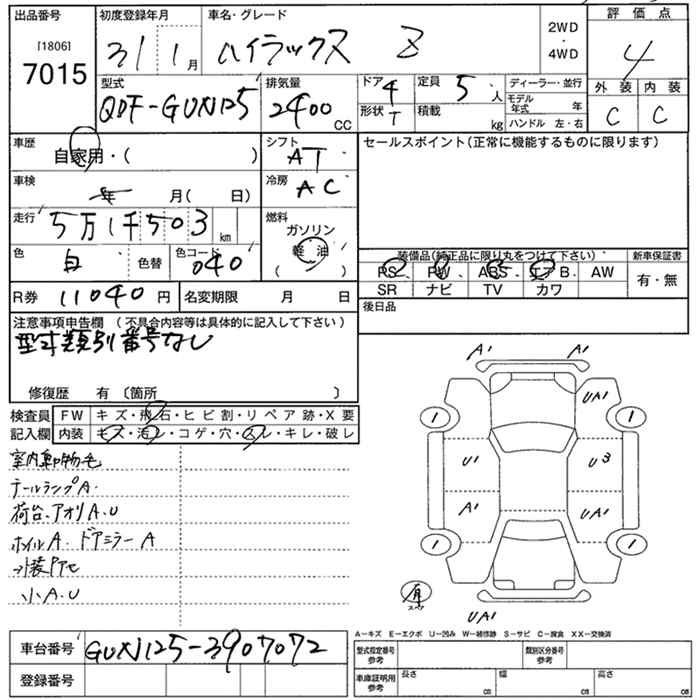 出品番号 初度登録年月 車名・グレード 2WD・4WD 評価点
[1806] 7015 31 1月 ハイラックス Z 4
型式 QDF-GUN125 排気量 2400CC ドア 4 定員 5人 ディーラー・並行 外装 内装
形状 T 積載 kg モデル年式 年 C C
ハンドル 左・右
車歴 自家用・( ) シフト AT セールスポイント(正常に機能するものに限ります)
車検 年 月( 日) 冷房 AC
走行 5万1千503km 燃料 ガソリン
軽油
( )
色 白 色替 色コード 040 装備品(純正品に限り丸をつけて下さい) 新車保証書
PS PW ABS エアB AW 有・無
SR ナビ TV カワ
R券 11040円 名変期限 月 日 後日品
注意事項申告欄 (不具合内容等は具体的に記入して下さい)
型式類別番号なし
修復歴 有 〔箇所 〕
検査員記入欄 FW キズ・飛石・ヒビ割・リペア跡・X要
内装 キズ・汚レ・コゲ・穴・スレ・キレ・破レ
テールランプA.
荷台.アオリA.U
ホイルA. ドアミラーA
小A.U
A1 A1
UA1
1 1
U1 U3
A1 UA1
1 1
UA1
A−キズ E−エクボ U−凹み W−補修跡 S−サビ C−腐食 XX−交換済
車台番号 GUN125-3907072
登録番号
型式指定番号 参考 類別区分番号 参考
車庫証明用 参考 長さ cm 幅 cm 高さ cm